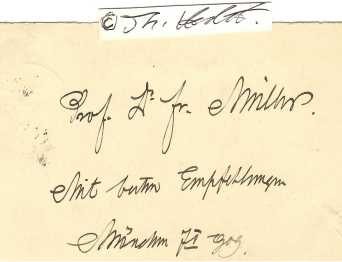 © Th. Vedst.
Prof. Dr. Fr. Müller.
Mit besten Empfehlungen
München 7I 909.